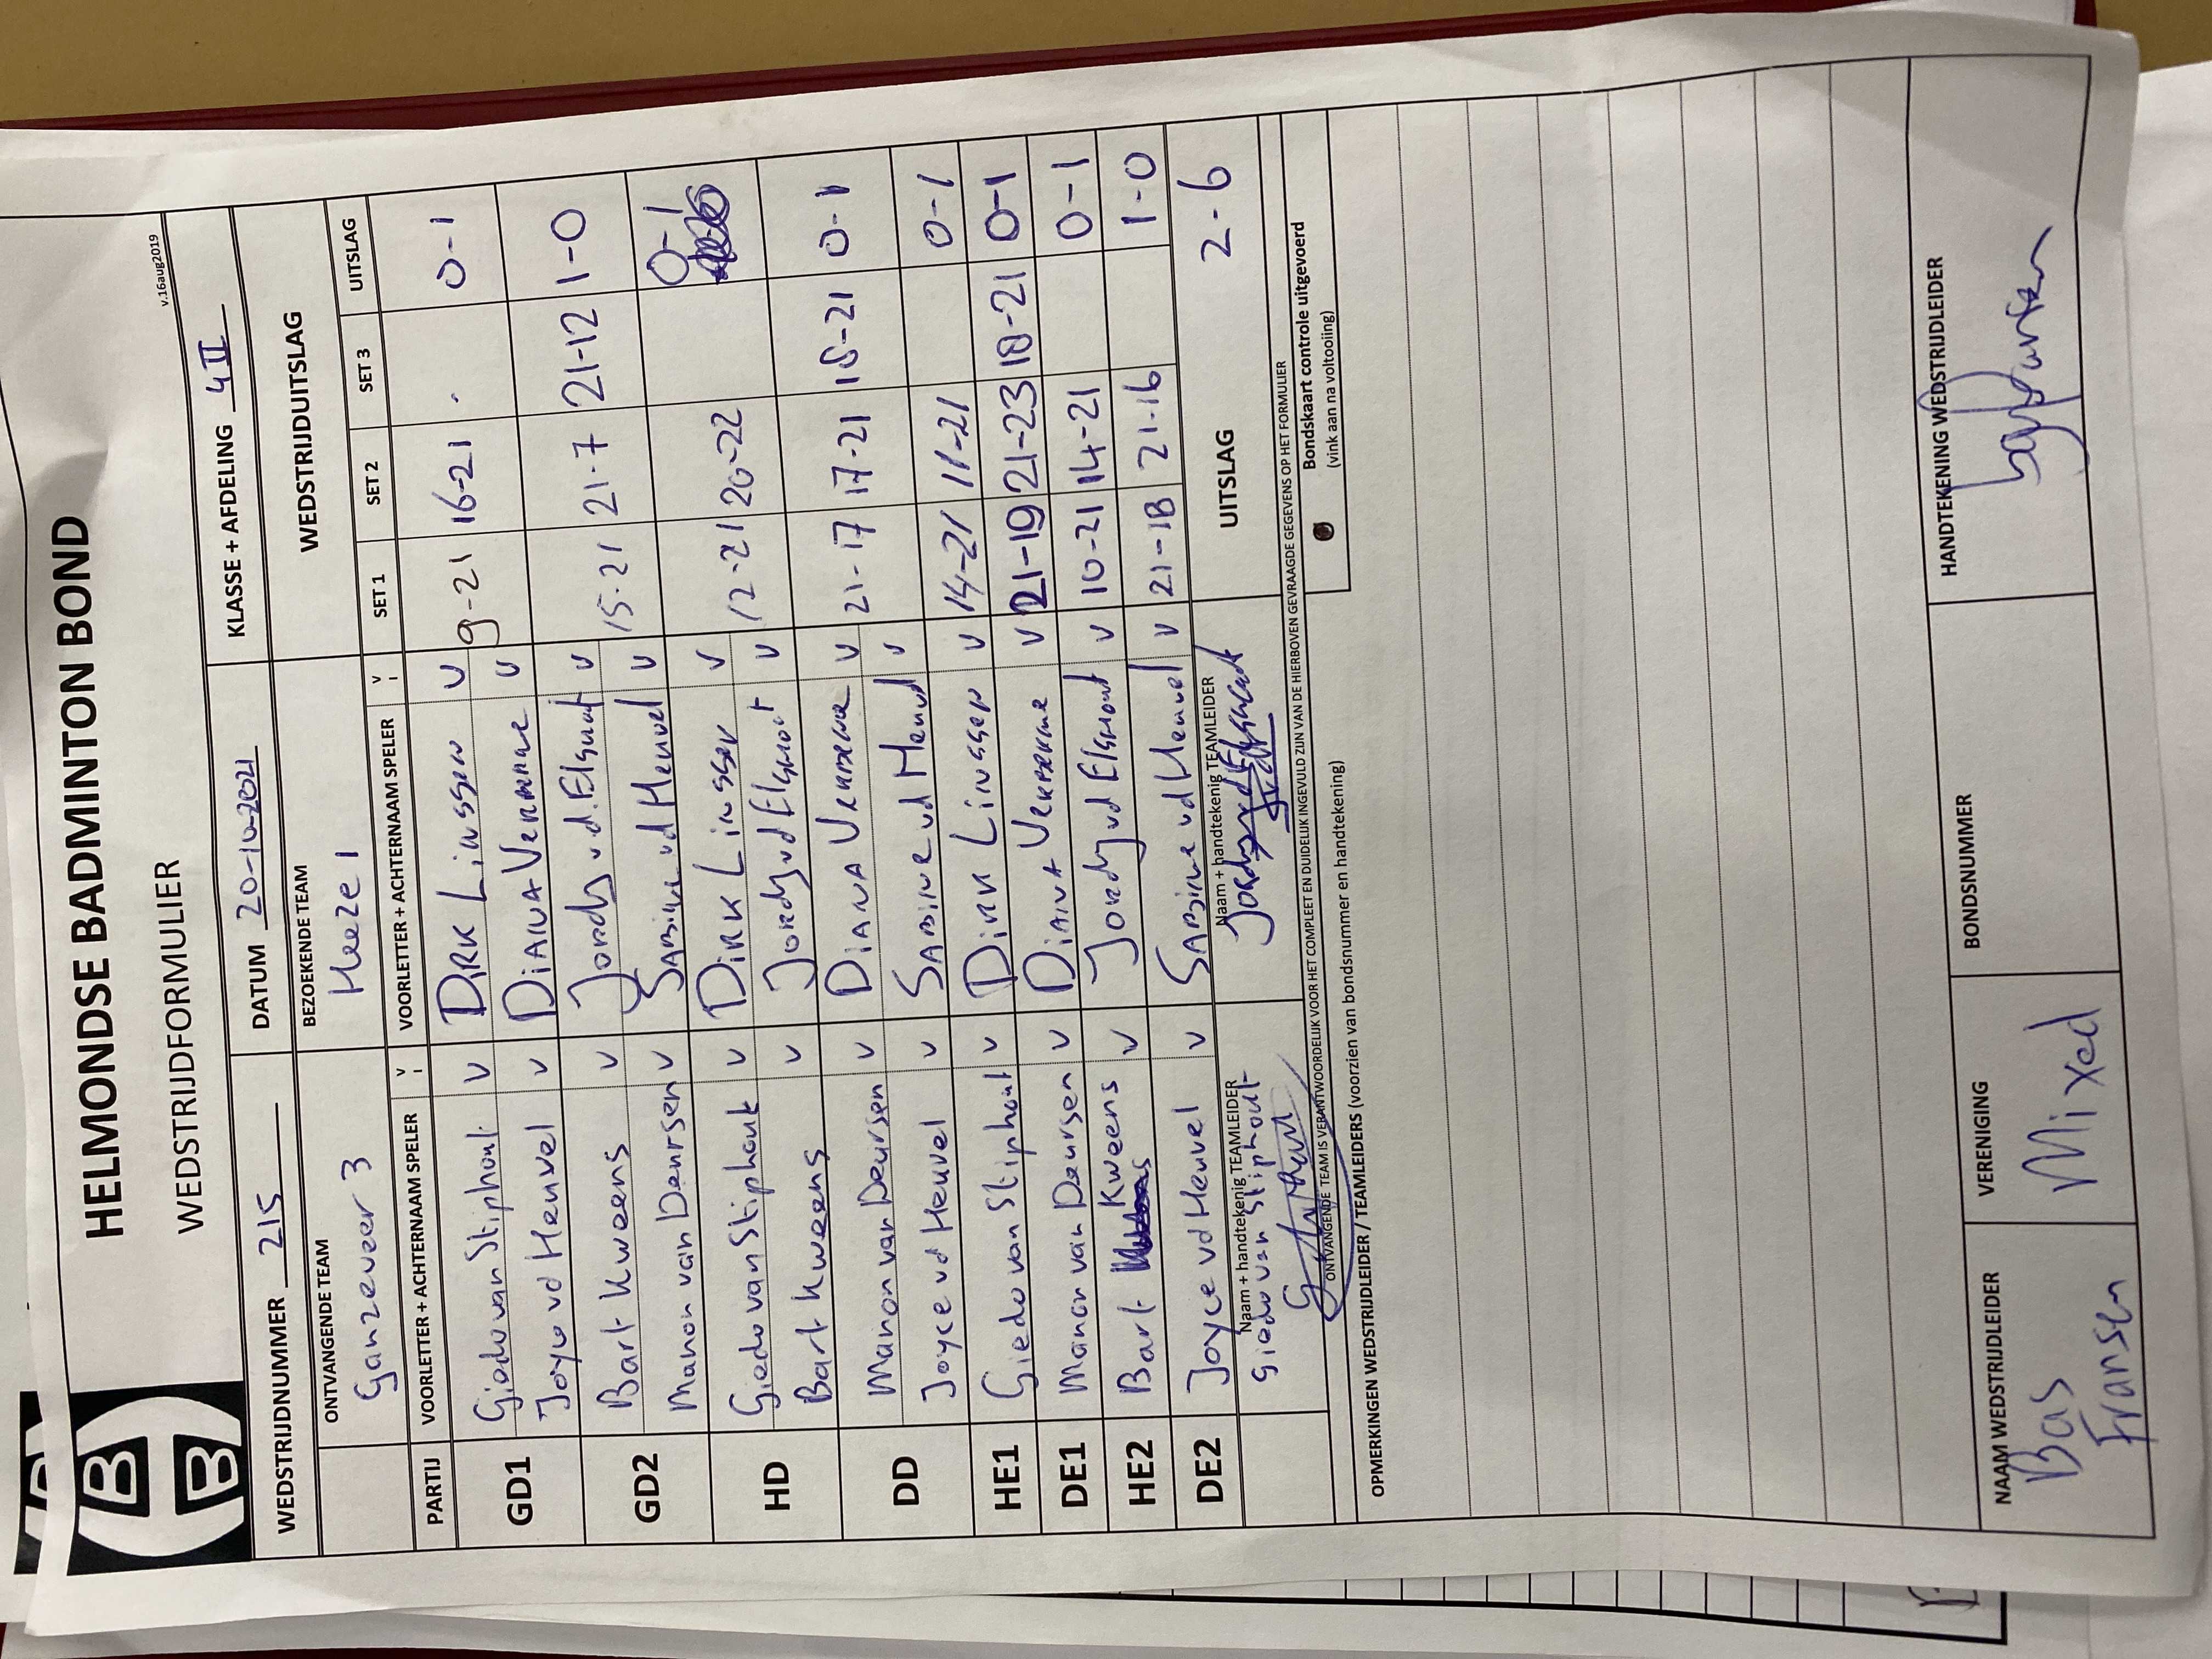 HELMONDSE BADMINTON BOND
WEDSTRIJDFORMULIER
v.16aug2019
WEDSTRIJDNUMMER 215 DATUM 20-10-2021 KLASSE + AFDELING 4 II
ONTVANGENDE TEAM BEZOEKENDE TEAM WEDSTRIJDUITSLAG
Ganzeveer 3 Heeze 1
PARTIJ VOORLETTER + ACHTERNAAM SPELER V I VOORLETTER + ACHTERNAAM SPELER V I SET 1 SET 2 SET 3 UITSLAG
GD1 Giedo van Stiphout V DIRK Linssen V 9-21 16-21 0-1
Joyce vd Heuvel V DIANA Verberne V
GD2 Bart Kweens V Jordy v.d. Elshout V 15-21 21-7 21-12 1-0
Manon van Deursen V SABine vd Heuvel V
HD Giedo van Stiphout V DIRK Linssen V 12-21 20-22 0-1
Bart Kweens V Jordy vd Elshout V
DD Manon van Deursen V DIANA Verberne V 21-17 17-21 16-21 0-1
Joyce vd Heuvel V SABINE vd Heuvel V
HE1 Giedo van Stiphout V DIRK Linssen V 14-21 11-21 0-1
DE1 Manon van Deursen V DIANA Verberne V 21-19 21-23 18-21 0-1
HE2 Bart Kweens V Jordy vd Elshout V 10-21 14-21 0-1
DE2 Joyce vd Heuvel V SABine vd Heuvel V 21-18 21-16 1-0
Naam + handtekenig TEAMLEIDER Naam + handtekenig TEAMLEIDER UITSLAG 2-6
Giedo van Stiphout Jordy vd Elshout
ONTVANGENDE TEAM IS VERANTWOORDELIJK VOOR HET COMPLEET EN DUIDELIJK INGEVULD ZIJN VAN DE HIERBOVEN GEVRAAGDE GEGEVENS OP HET FORMULIER
OPMERKINGEN WEDSTRIJDLEIDER / TEAMLEIDERS (voorzien van bondsnummer en handtekening)
Bondskaart controle uitgevoerd
(vink aan na voltooiing)
NAAM WEDSTRIJDLEIDER VERENIGING BONDSNUMMER HANDTEKENING WEDSTRIJDLEIDER
Bas Mixed
Fransen